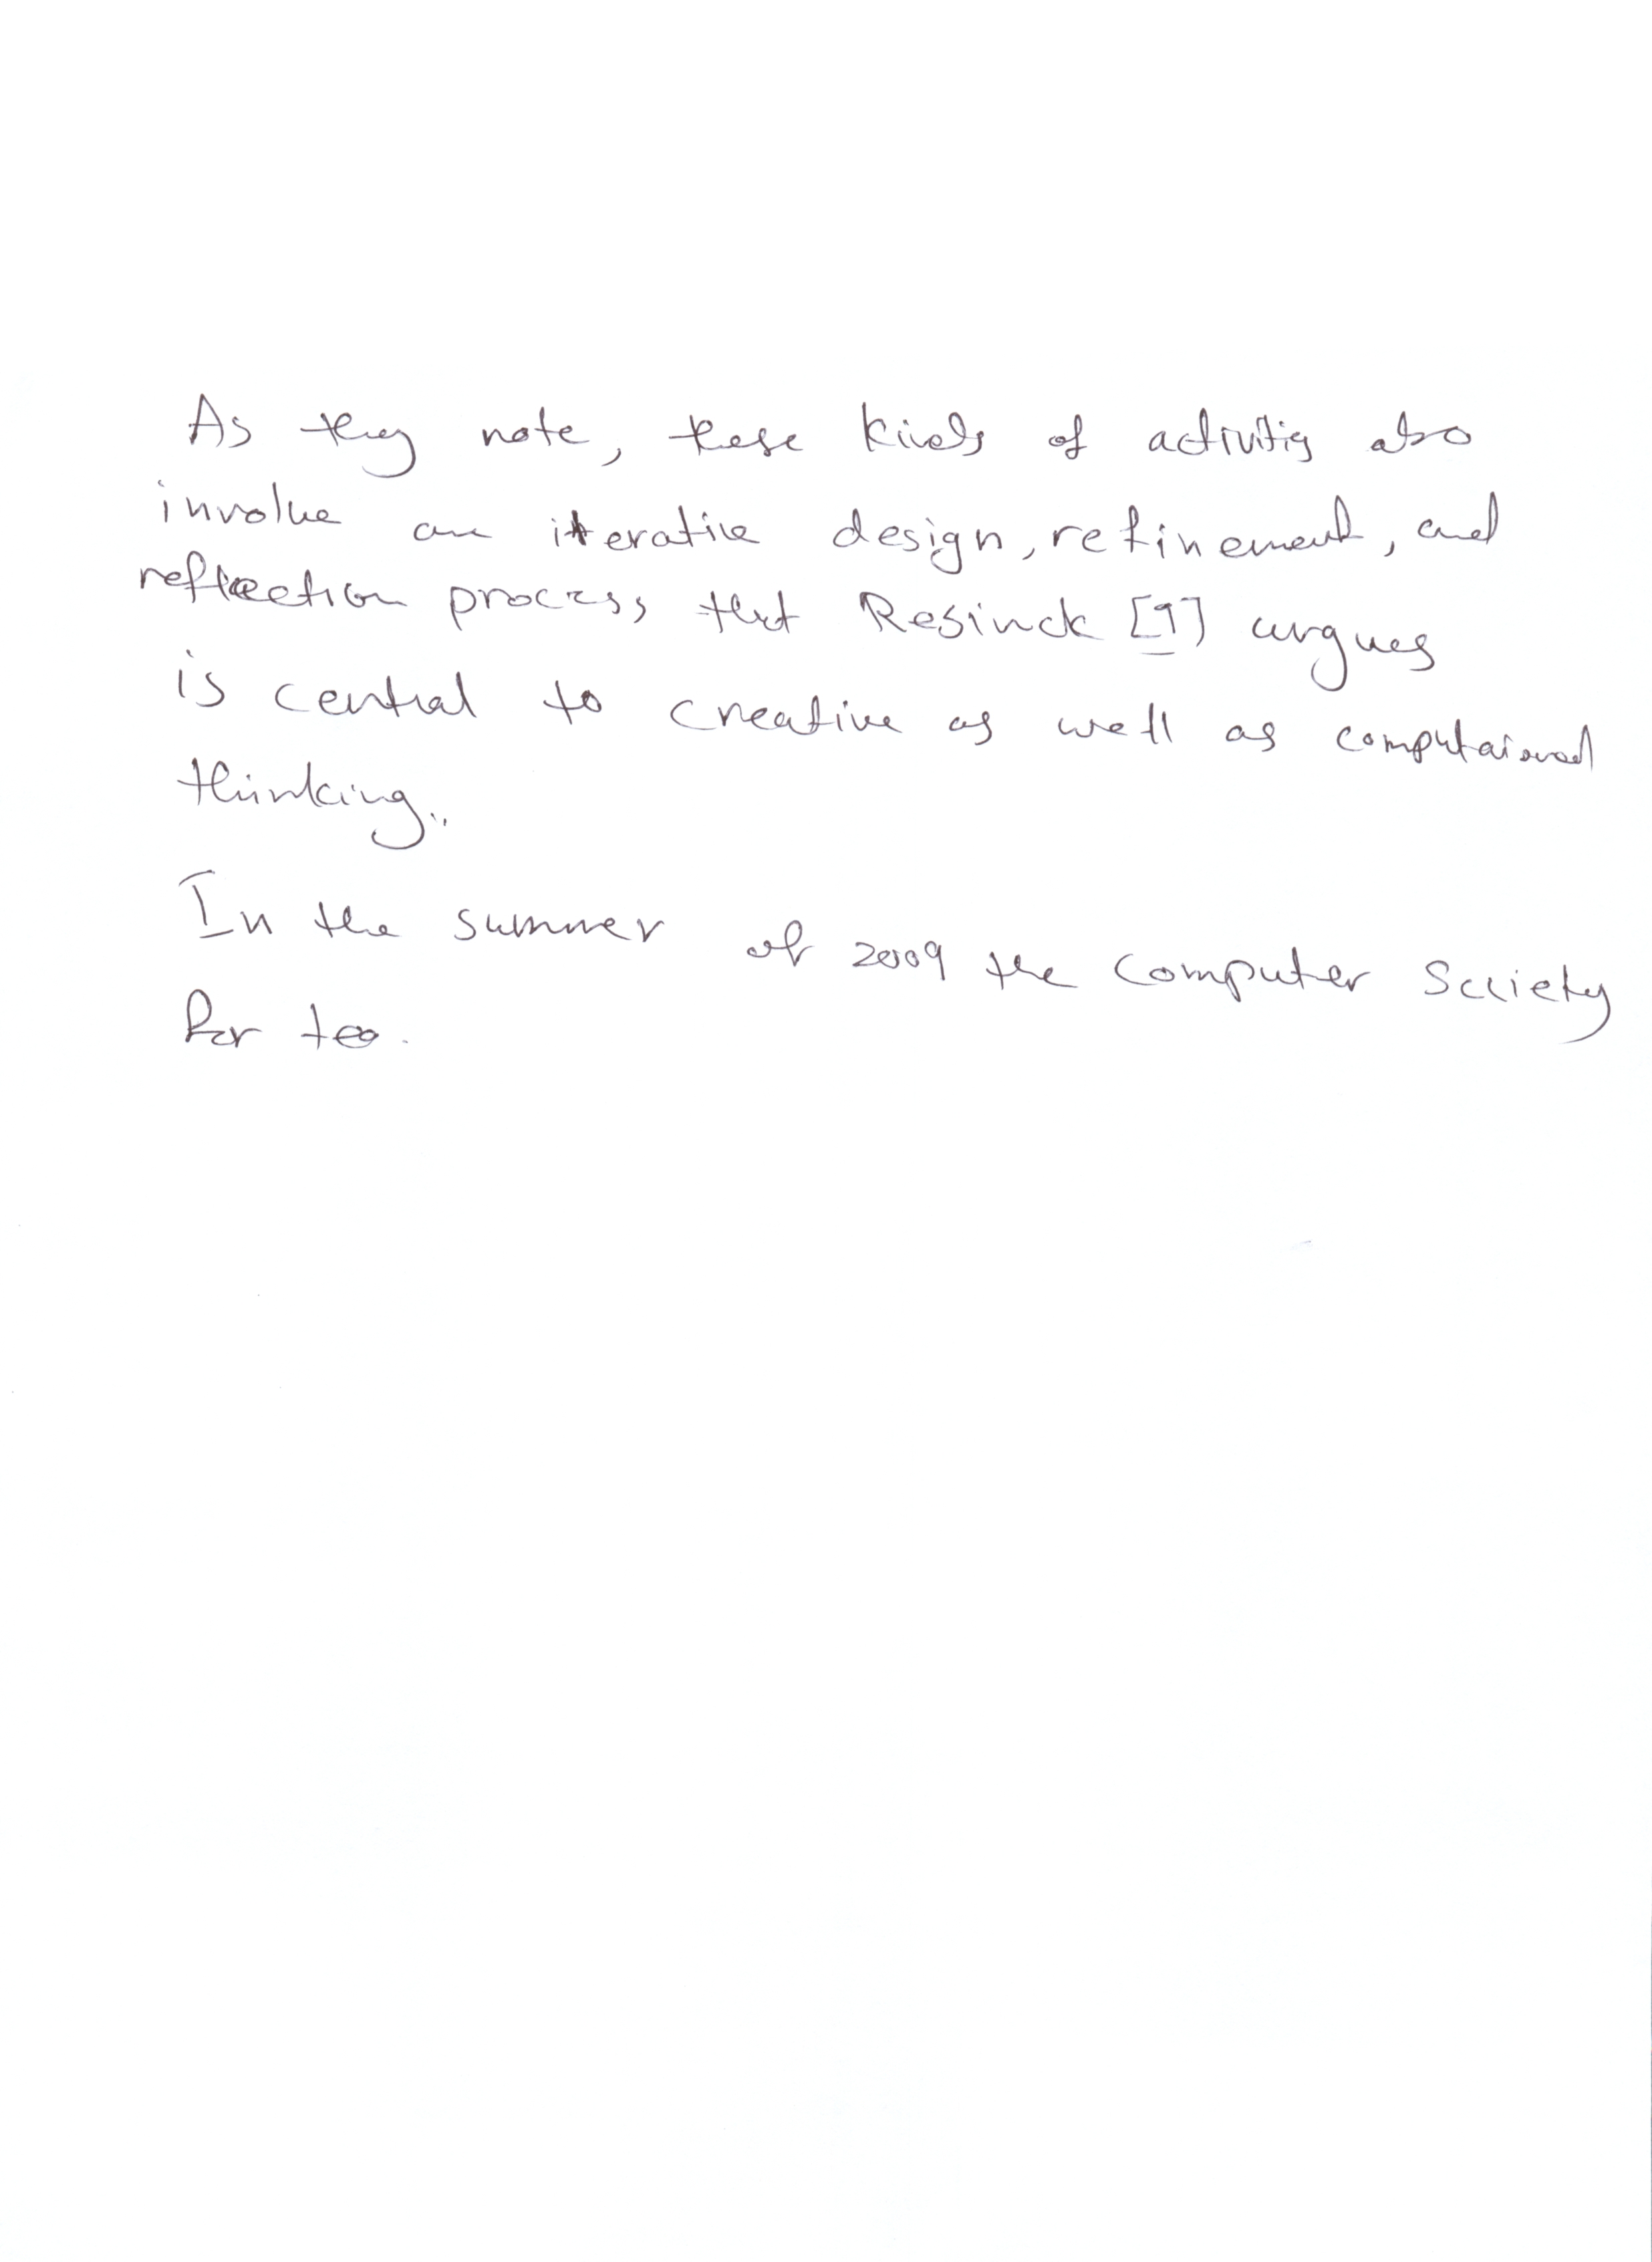 As they note, these kinds of activitis also
involve an iterative design, refinement, and
reflection process that Resinck [9] argues
is central to creative as well as computaional
thinking.
In the summer of 2009 the Computer Society
for tea.